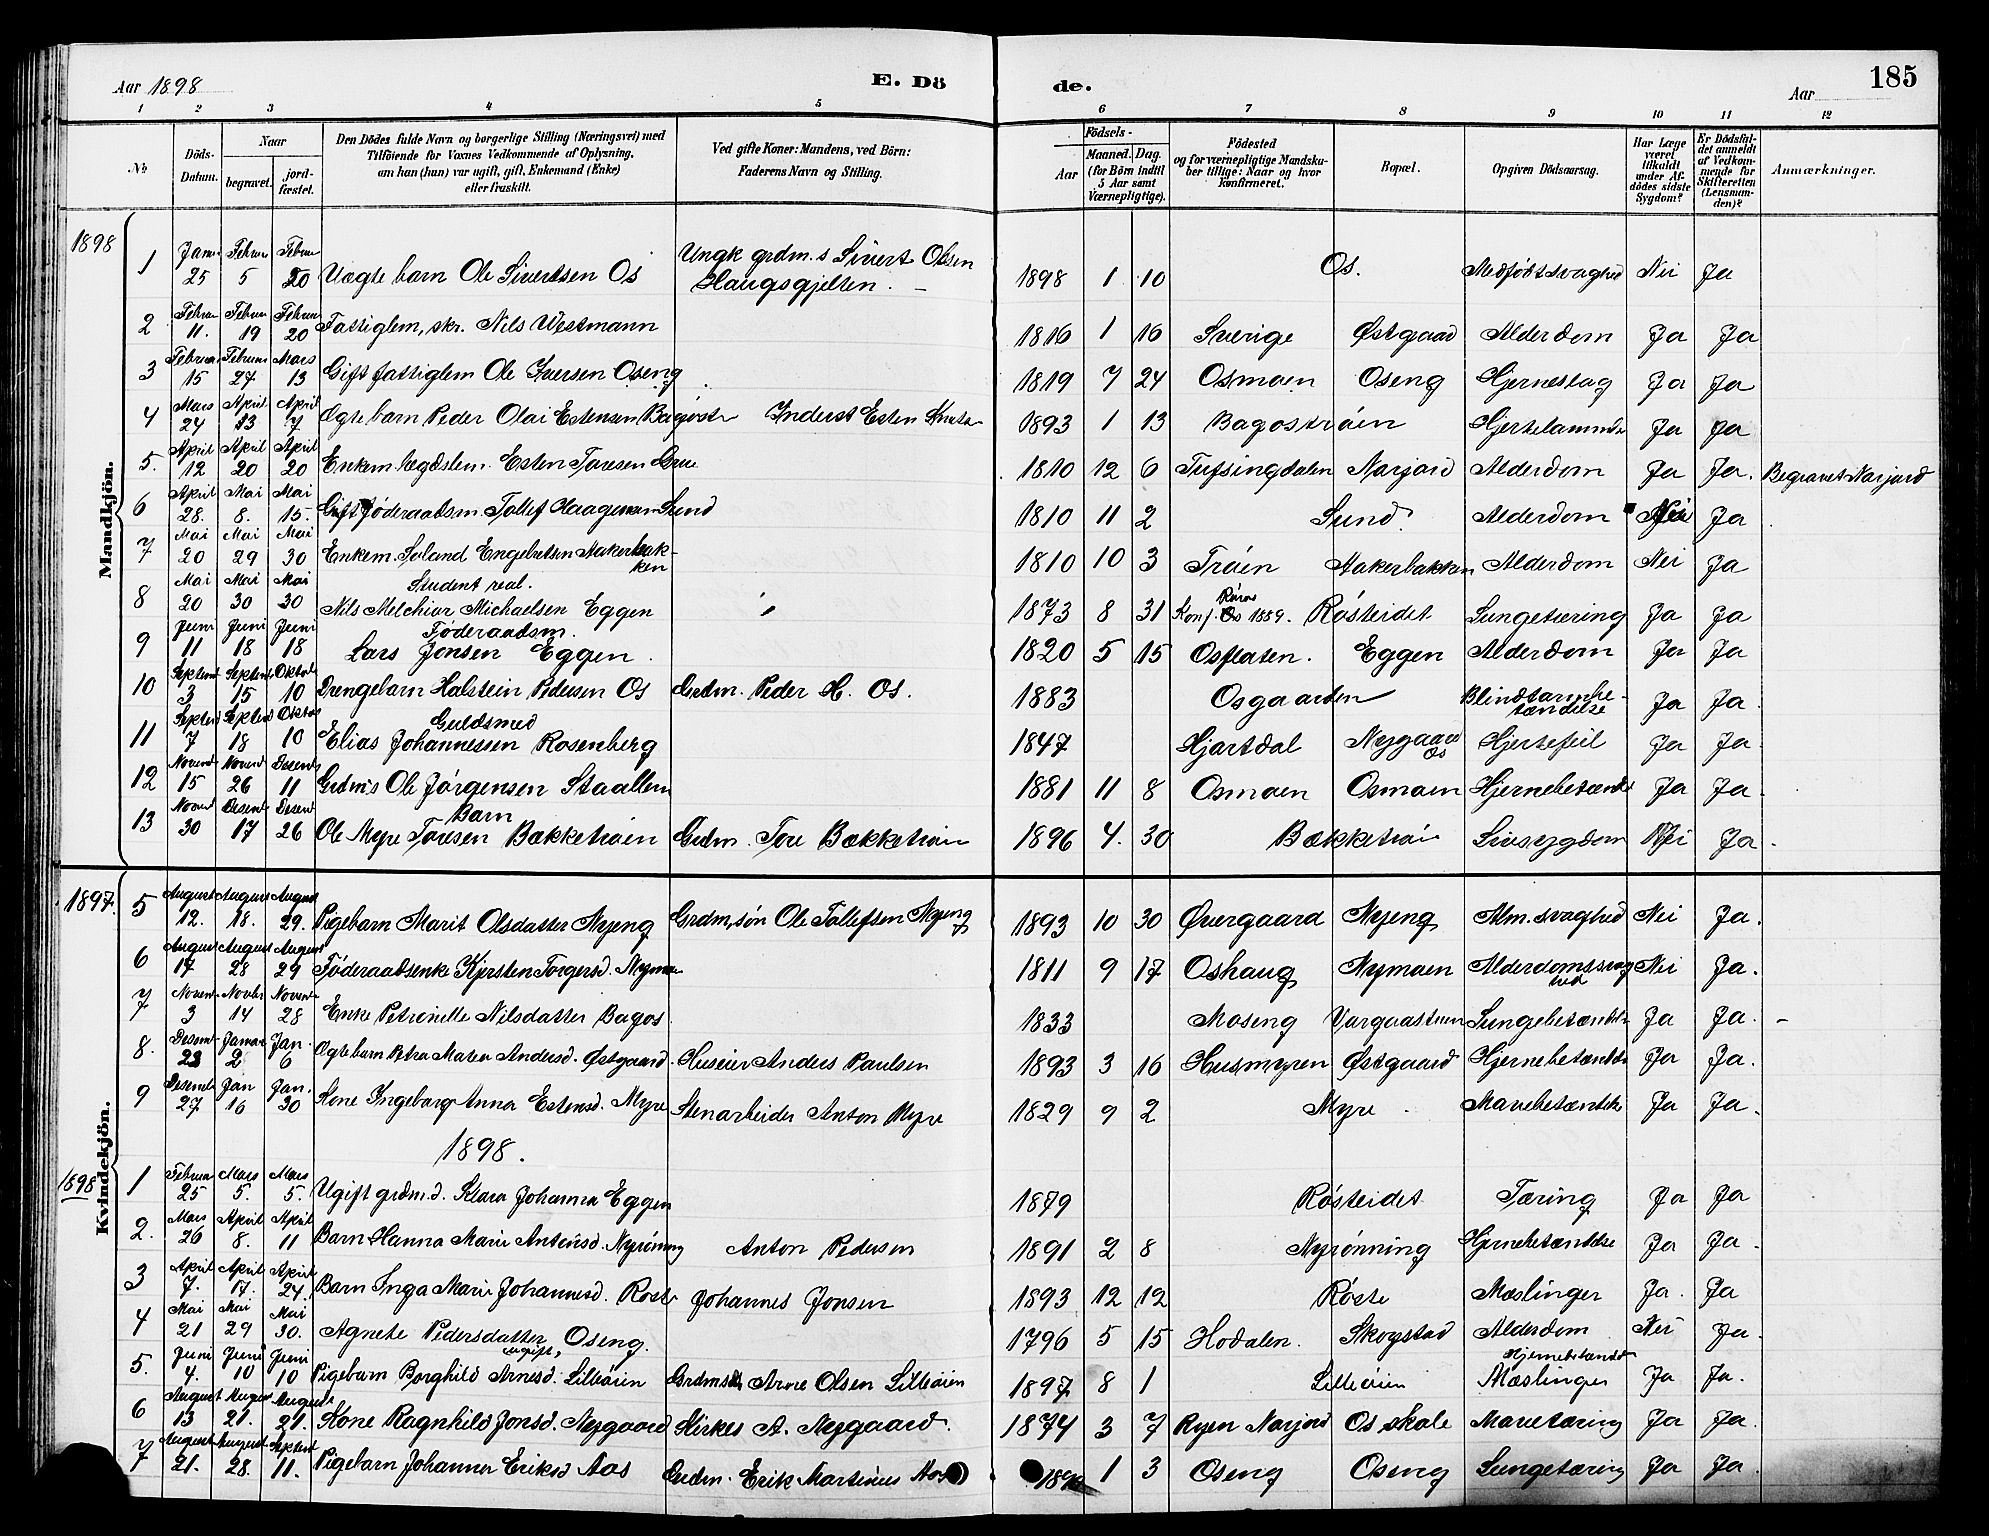 Aar 1898 E. Dö de. Aar 185
1 2 3 4 5 6 7 8 9 10 11 12
№ Döds-Datum. Naar begravet. jord-fæstet. Den Dödes fulde Navn og borgerlige Stilling (Næringsvei) med Tilföiende for Voxnes Vedkommende af Oplysning, om han (hun) var ugift, gift, Enkemand (Enke) eller fraskilt. Ved gifte Koner: Mandens, ved Börn: Faderens Navn og Stilling. Födsels- Aar Maaned. Dag. (for Börn indtil 5 Aar samt Værnepligtige). Födested og for værnepligtige Mandskaber tillige: Naar og hvor konfirmeret. Bopæl. Opgiven Dödsaarsag. Har Læge været tilkaldt under Afdödes sidste Sygdom? Er Dödsfaldet anmeldt af Vedkommende for Skifteretten (Lensmanden)? Anmærkninger.
Mandkjön.
1898 1 Janu 25 Februa 5 Februa 20 Uægte barn Ole Sivertsen Os Ungk grdm.s Sivert Olsen Haugsgjelten. 1898 1 10 Os. Medfödt svaghed Nei Ja
2 Februa 11. Februa 19 Februa 20 Fattiglem, skr. Nils Westmann 1816 1 16 Sverige Østgaard Alderdom Ja Ja
3 Februa 15 Februa 27 Mars 13 Gift fattiglem Ole Iversen Oseng 1819 7 24 Osmoen Oseng Hjerneslag Ja Ja
4 Mars 24 April 13 April 7 Ægte barn Peder Olai Estensen Bagøstr Inderst Esten Knuts 1893 1 13 Bagostrøien Hjertelammelse Ja Ja
5. April 12 April 20 April 20 Enkem. lægdslem. Esten Toresen Grue 1810 12 6 Tufsingdalen Narjord Alderdom Ja Ja. Begravet Narjord
6 April 28. Mai 8. Mai 15. Gift føderaadsm. Tollef Haagensen Sund 1810 11 2 Sund. Alderdom Nei Ja
7 Mai 20 Mai 29 Mai 30 Enkem. Erland Engebretsen Aakerbakken 1810 10 3 Trøen Aakerbakken Alderdom Nei Ja
8 Mai 20 Mai 30 Mai 30 Student real. Nils Melchior Michaelsen Eggen 1873 8 31 Konf. Os Røros 1889. Røsteidet Lungetæring Ja Ja
9 Juni 11 Juni 18 Juni 18 Føderaadsm. Lars Jonsen Eggen. 1820 5 15 Osflaten. Eggen Alderdom Ja Ja
10 Septemb 3 Septemb 15 Oktob 10 Drengebarn Halstein Pedersen Os Grdm. Peder H. Os. 1883 Osgaarden Blindtarmbetændelse Ja Ja.
11 Septemb 7 Septemb 18 Oktob 10 Guldsmed Elias Johannessen Rosenberg 1847 Hjartdal Nygaard Os Hjertefeil Ja Ja.
12 Novemb 15 Novemb 26 Desemb 11 Grdm's Ole Jørgensen Staallem 1881 11 8 Osmoen Osmoen Hjernebetænd Ja Ja.
13 Novemb 30 Desemb 17 Desemb 26 Barn Ole Myre Toresen Bækketrøen Grdm. Tore Bækketrøen 1896 4. 30 Bækketrøi Livsygdom Nei Ja.
Kvindekjön.
1897 5 August 12. August 18. August 29. Pigebarn Marit Olsdatter Nyeng Grdm.søn Ole Tollefsen Nyeng 1893 10 30 Øvergaard Nyeng Alm. svaghed Nei Ja.
6 August 17 August 28 August 29 Føderaadsenke Kjersten Torgersd. Nymoen 1811 9 17 Oshaug Nymoen Alderdomssvaghed Nei Ja.
7 Novemb 3 Novbr 14 Novemb 28 Enke Petronille Nilsdatter Bagos. 1833 Moseng Vargaastuen Lungebetændel. Ja Ja. -
8. Desemb 23 Januar 2 Jan. 6 Ægtebarn Petra Matea Andersd. Østgaard. Huseier Anders Paulsen 1893 3 16 Husmyren Østgaard Hjernebetændel Ja Ja.
9 Desemb 27 Jan 16 Jan. 30 Kone Ingeborg Anna Estensd. Myre Stenarbeider Anton Myre 1829 9 2 Myre. Mavebetændelse Ja Ja.
1898.
1898 1 Februa 25 Mars 5. Mars 5. Ugift grdm.d. Klara Johanna Eggen 1879 Røsteidet Tæring Ja Ja
2. Mars 26 April 8. April 11 Barn Hanna Marie Antonsd. Nyrønning Anton Pedersen 1891 2 8 Nyrønning Hjernebetændelse Ja Ja.
3 April 7. April 17. April 24. Barn Inga Marie Johannesd. Røste Johannes Jonsen 1893 12 12 Røste Mæslinger Ja. Ja
4 Mai 21 Mai 29 Mai 30. Agnete Pedersdatter, Oseng. ugift, 1796 5 15 Hodalen. Skogstad Alderdom Nei Ja.
5. Juni 4. Juni 10 Juni 10 Pigebarn Borghild Arnesd. Lilleøien Grdms Arne Olsen Lilleøien 1897 8 1 Lilleøien Hjernebetændel Mæslinger Ja Ja.
6 August 13 August 21. August 21. Kone Ragnhild Jonsd. Nygaard Kirkes A. Nygaard. 1874 3 7 Ryen Narjord Os skole Mavetæring Ja Ja.
7 August 21. August 28. Septemb 11. Pigebarn Johanna Eriksd Aas Grdm. Erik Martinus 189 1 3 Oseng Oseng Lungetæring Ja Ja.